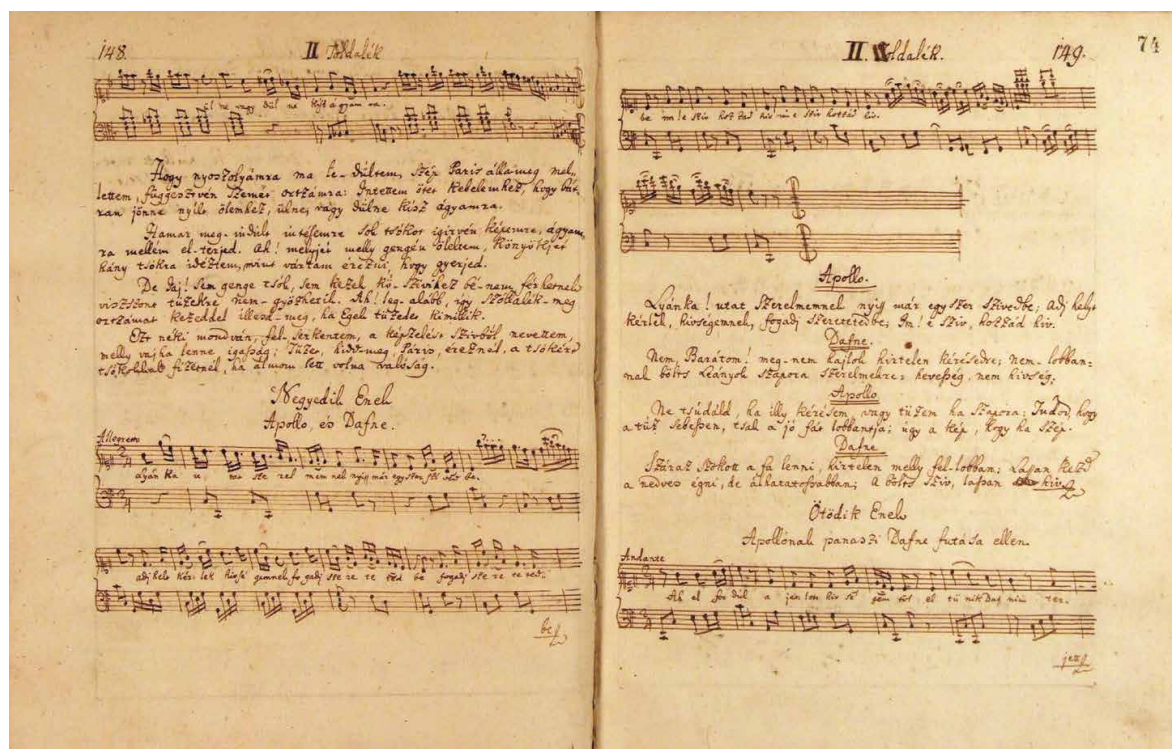 148. II Toldalék
ül ne vagy dül ne kisz ágyam ra.
Hogy nyoszolyámra ma le-dültem, szép Paris álla-meg mel„
lettem, függesztvén szemét ortzámra: Intettem ötet kebelemhez, hogy bát„
ran jönne nyilt ölemhez, ülne, vagy dülne kisz ágyamra.
Hamar meg-indult intésemre sok tsókot igirvén képemre, ágyam„
ra mellém el-terjed. Ah! mellyjét melly gengén öleltem, könyökjét
hány tsókra idéztem, mivel vártam érezni, hogy gyerjed.
De haj! sem genge tsók, sem kezek kö-szivihez bé-nem férhetnek
viszszont tüzekre nem-győzhetik. Ah! leg-alább, igy szóllalék-meg
ortzámat kezeddel illesd-meg, ha Egek tüzedet kimillik.
Ezt neki mondván, fel-serkentem, a képzelést szivből, nevettem,
melly vajha lenne igazság; Tüzet, hidd-meg! Páris, éreznél, a tsókért
tsókokkal fizetnél, ha álmom lett volna valóság.
Negyedik Ének
Apollo, és Dafne.
Allegretto
Lyán ka u, tat sze rel mem nek nyiss már egy szer szi vedbe.
adj hely kér lek hivsé gemnek, fo gadj sze re te ted be fogadj sze re te ted„
be
II. Toldalék. 149. 74
be im! e sziv hoz zád hiv im e sziv hozzád hiv.
Apollo.
Lyánka! utat szerelmemnek nyiss már egyszer szivedbe, adj helyt
kérlek, hivségemnek, fogadj szeretetedbe; Im! é sziv, hozzád hiv.
Dafne.
Nem, Barátom! meg-nem hajlok hirtelen kérésedre; nem-lobban:
nak bölts Leányok szapora szerelmekre: hevesség, nem hivség;
Apollo
Ne tsúdáld, ha illy kérésem, vagy tüzem ha szapora: Tudod, hogy
a tüz sebessen, tsak a jó fát lobbantja; úgy a kép, hogy ha szép.
Dafne
Száraz szokott a fa lenni, hirtelen melly fel-lobban; Lassan kezd
a nedves égni, de álhatatossabban; A bölts sziv, lassan hiv.
Ötödik Ének
Apollónak panaszi Dafne futása ellen.
Andante
Ah el for dúl a jen len hiv sé gem től el tü nik Daf nim ter.